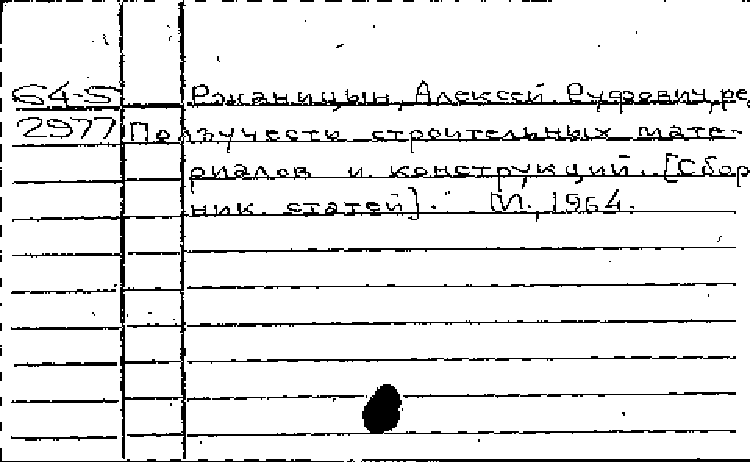 64-5 Ржаницын, Алексей Руфович, ред
2977 Ползучесть строительных мате-
риалов и конструкций. [Сбор
ник статей]. М., 1964.